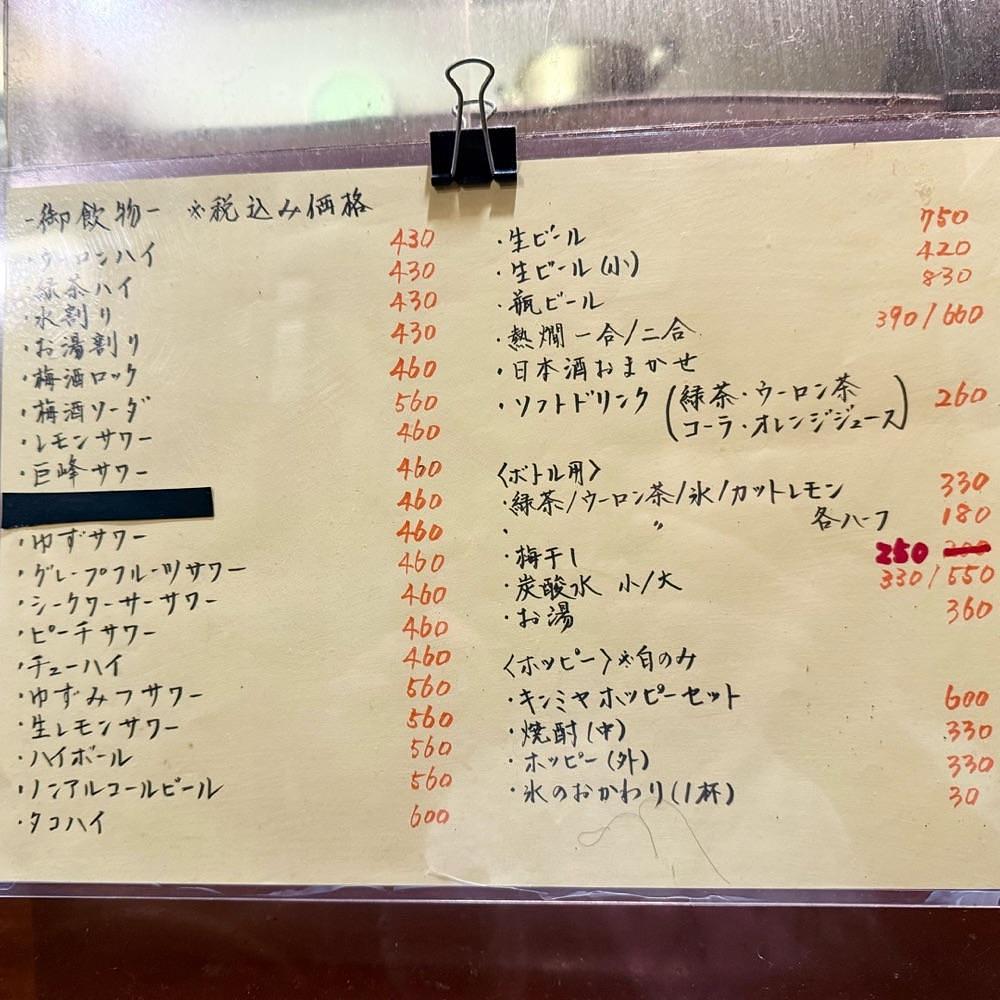 -御飲物- ※税込み価格
・ウーロンハイ 430
・緑茶ハイ 430
・水割り 430
・お湯割り 430
・梅酒ロック 460
・梅酒ソーダ 560
・レモンサワー 460
・巨峰サワー 460
460
・ゆずサワー 460
・グレープフルーツサワー 460
・シークワーサーサワー 460
・ピーチサワー 460
・チューハイ 460
・ゆずみつサワー 560
・生レモンサワー 560
・ハイボール 560
・ノンアルコールビール 560
・タコハイ 600
・生ビール 750
・生ビール(小) 420
・瓶ビール 830
・熱燗 一合/二合 390/660
・日本酒おまかせ
・ソフトドリンク (緑茶・ウーロン茶 260
コーラ・オレンジジュース)
〈ボトル用〉
・緑茶/ウーロン茶/氷/カットレモン 330
・ 〃 各ハーフ 180
・梅干し 250
・炭酸水 小/大 330/550
・お湯 360
〈ホッピー〉※白のみ
・キンミヤホッピーセット 600
・焼酎(中) 330
・ホッピー(外) 330
・氷のおかわり(1杯) 30